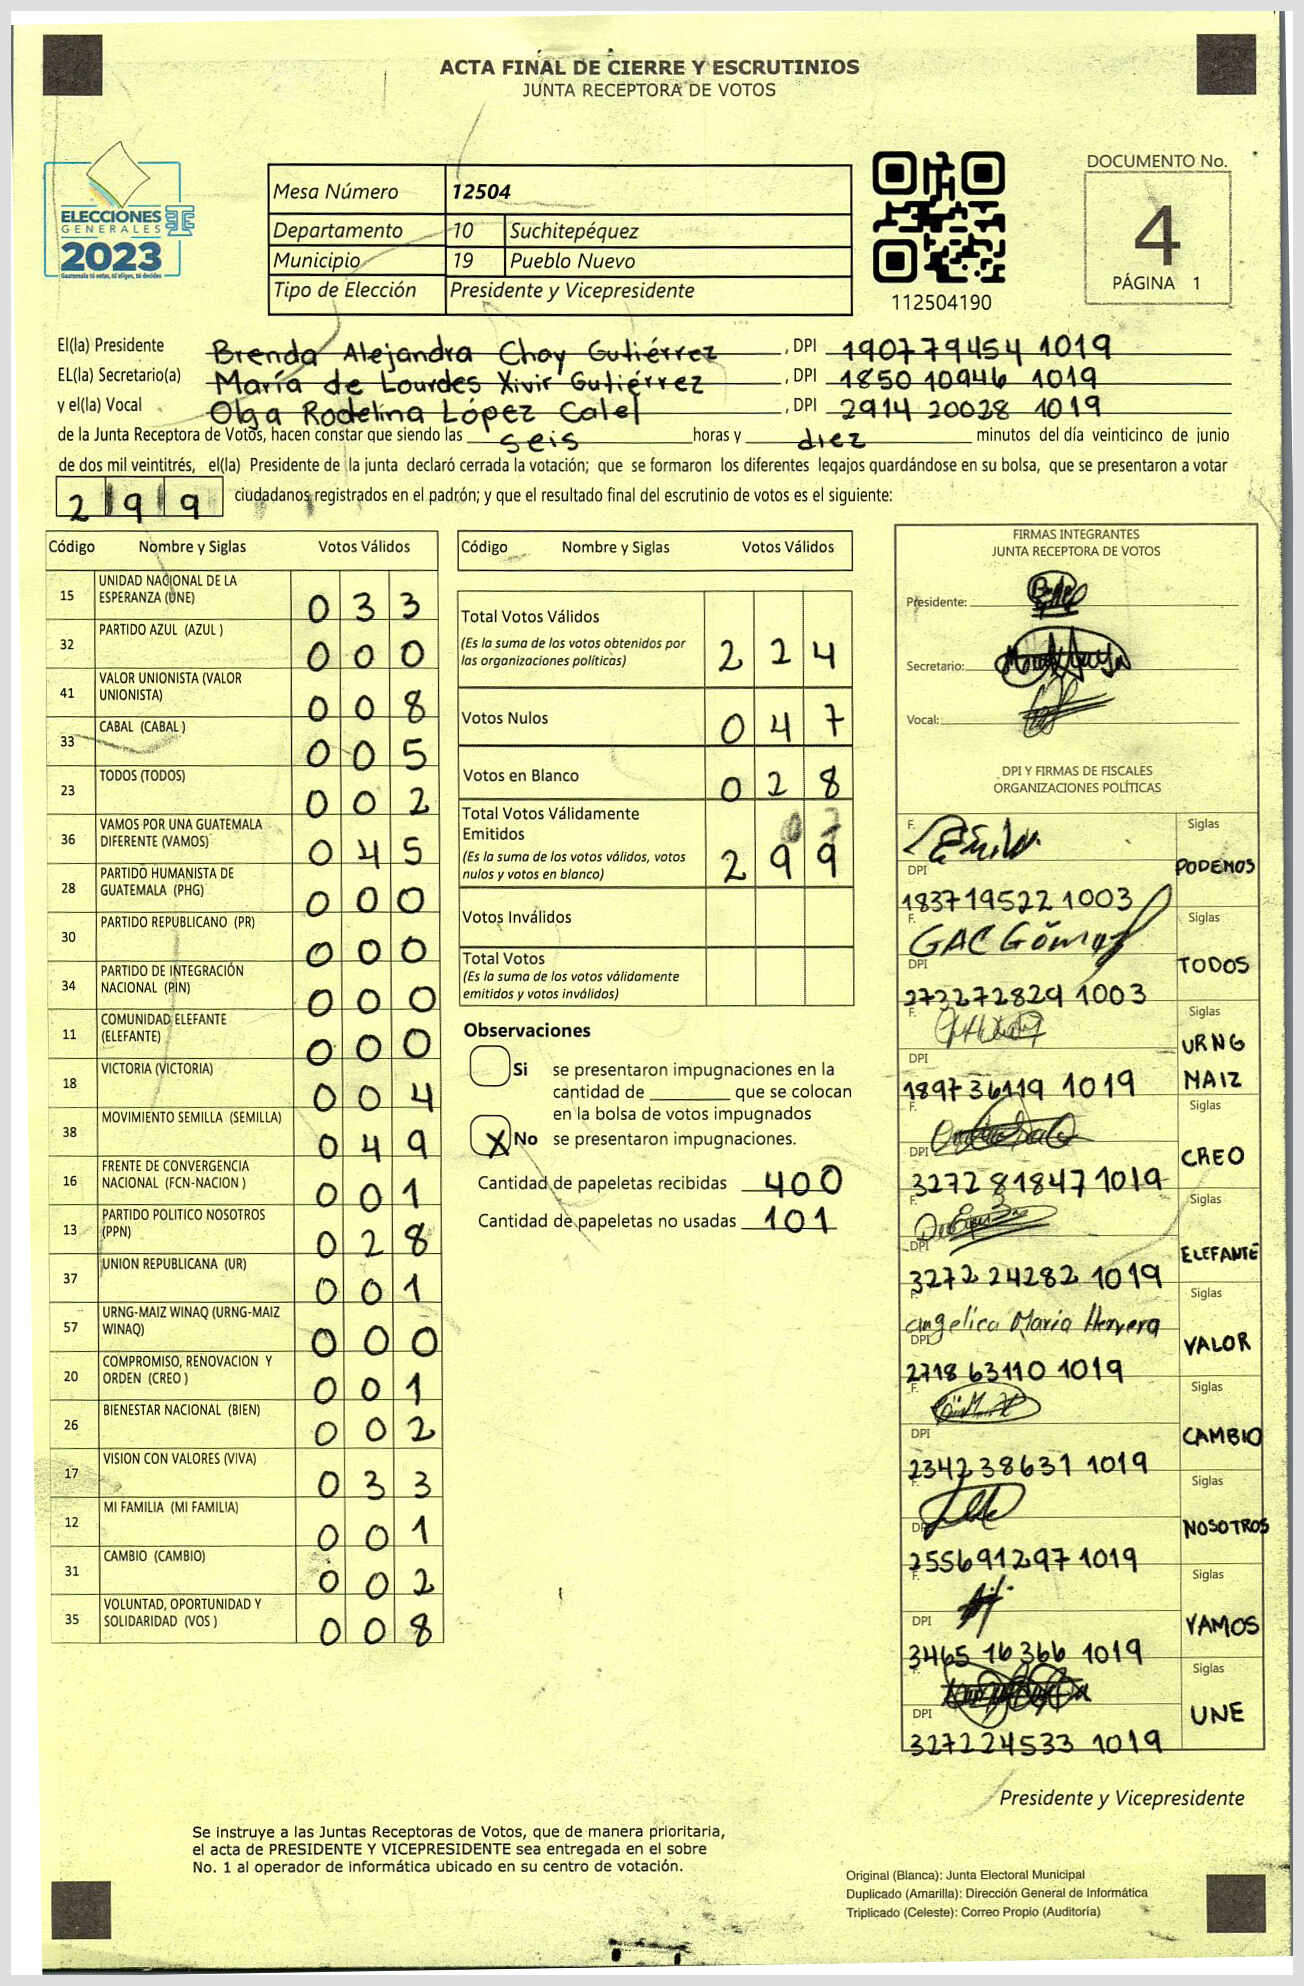 ACTA FINAL DE CIERRE Y ESCRUTINIOS
JUNTA RECEPTORA DE VOTOS
ELECCIONES
GENERALES
2023
Guatemala tú votas, tú eliges, tú decides
Mesa Número 12504
Departamento 10 Suchitepéquez
Municipio 19 Pueblo Nuevo
Tipo de Elección Presidente y Vicepresidente
112504190
DOCUMENTO No.
4
PÁGINA 1
El(la) Presidente Brenda Alejandra Choy Gutiérrez, DPI 190779454 1019
EL(la) Secretario(a) María de Lourdes Xivir Gutiérrez, DPI 1850 10946 1019
y el(la) Vocal Olga Rodelina López Calel, DPI 2914 20028 1019
de la Junta Receptora de Votos, hacen constar que siendo las seis horas y diez minutos del día veinticinco de junio
de dos mil veintitrés, el(la) Presidente de la junta declaró cerrada la votación; que se formaron los diferentes legajos guardándose en su bolsa, que se presentaron a votar
299 ciudadanos registrados en el padrón; y que el resultado final del escrutinio de votos es el siguiente:
Código Nombre y Siglas Votos Válidos
15 UNIDAD NACIONAL DE LA ESPERANZA (UNE) 033
32 PARTIDO AZUL (AZUL ) 000
41 VALOR UNIONISTA (VALOR UNIONISTA) 008
33 CABAL (CABAL ) 005
23 TODOS (TODOS) 002
36 VAMOS POR UNA GUATEMALA DIFERENTE (VAMOS) 045
28 PARTIDO HUMANISTA DE GUATEMALA (PHG) 000
30 PARTIDO REPUBLICANO (PR) 000
34 PARTIDO DE INTEGRACIÓN NACIONAL (PIN) 000
11 COMUNIDAD ELEFANTE (ELEFANTE) 000
18 VICTORIA (VICTORIA) 004
38 MOVIMIENTO SEMILLA (SEMILLA) 049
16 FRENTE DE CONVERGENCIA NACIONAL (FCN-NACION ) 001
13 PARTIDO POLITICO NOSOTROS (PPN) 028
37 UNION REPUBLICANA (UR) 001
57 URNG-MAIZ WINAQ (URNG-MAIZ WINAQ) 000
20 COMPROMISO, RENOVACION Y ORDEN (CREO ) 001
26 BIENESTAR NACIONAL (BIEN) 002
17 VISION CON VALORES (VIVA) 033
12 MI FAMILIA (MI FAMILIA) 001
31 CAMBIO (CAMBIO) 002
35 VOLUNTAD, OPORTUNIDAD Y SOLIDARIDAD (VOS ) 008
Código Nombre y Siglas Votos Válidos
Total Votos Válidos
(Es la suma de los votos obtenidos por
las organizaciones políticas) 224
Votos Nulos 047
Votos en Blanco 028
Total Votos Válidamente
Emitidos
(Es la suma de los votos válidos, votos
nulos y votos en blanco) 299
Votos Inválidos
Total Votos
(Es la suma de los votos válidamente
emitidos y votos inválidos)
Observaciones
Si se presentaron impugnaciones en la
cantidad de ________ que se colocan
en la bolsa de votos impugnados
X No se presentaron impugnaciones.
Cantidad de papeletas recibidas 400
Cantidad de papeletas no usadas 101
FIRMAS INTEGRANTES
JUNTA RECEPTORA DE VOTOS
Presidente:
Secretario:
Vocal:
DPI Y FIRMAS DE FISCALES
ORGANIZACIONES POLÍTICAS
F. Siglas
DPI 183719522 1003 PODEMOS
F. GAC Gómez Siglas
DPI 273272829 1003 TODOS
F. Siglas
DPI 189736119 1019 URNG MAIZ
F. Siglas
DPI 3272 81847 1019 CREO
F. Siglas
DPI 3272 24282 1019 ELEFANTE
F. Angelica Maria Herrera Siglas
DPI 2718 63110 1019 VALOR
F. Siglas
DPI 234238631 1019 CAMBIO
F. Siglas
DPI 255691297 1019 NOSOTROS
F. Siglas
DPI 3465 16366 1019 VAMOS
F. Siglas
DPI 327224533 1019 UNE
Presidente y Vicepresidente
Se instruye a las Juntas Receptoras de Votos, que de manera prioritaria,
el acta de PRESIDENTE Y VICEPRESIDENTE sea entregada en el sobre
No. 1 al operador de informática ubicado en su centro de votación.
Original (Blanca): Junta Electoral Municipal
Duplicado (Amarilla): Dirección General de Informática
Triplicado (Celeste): Correo Propio (Auditoría)